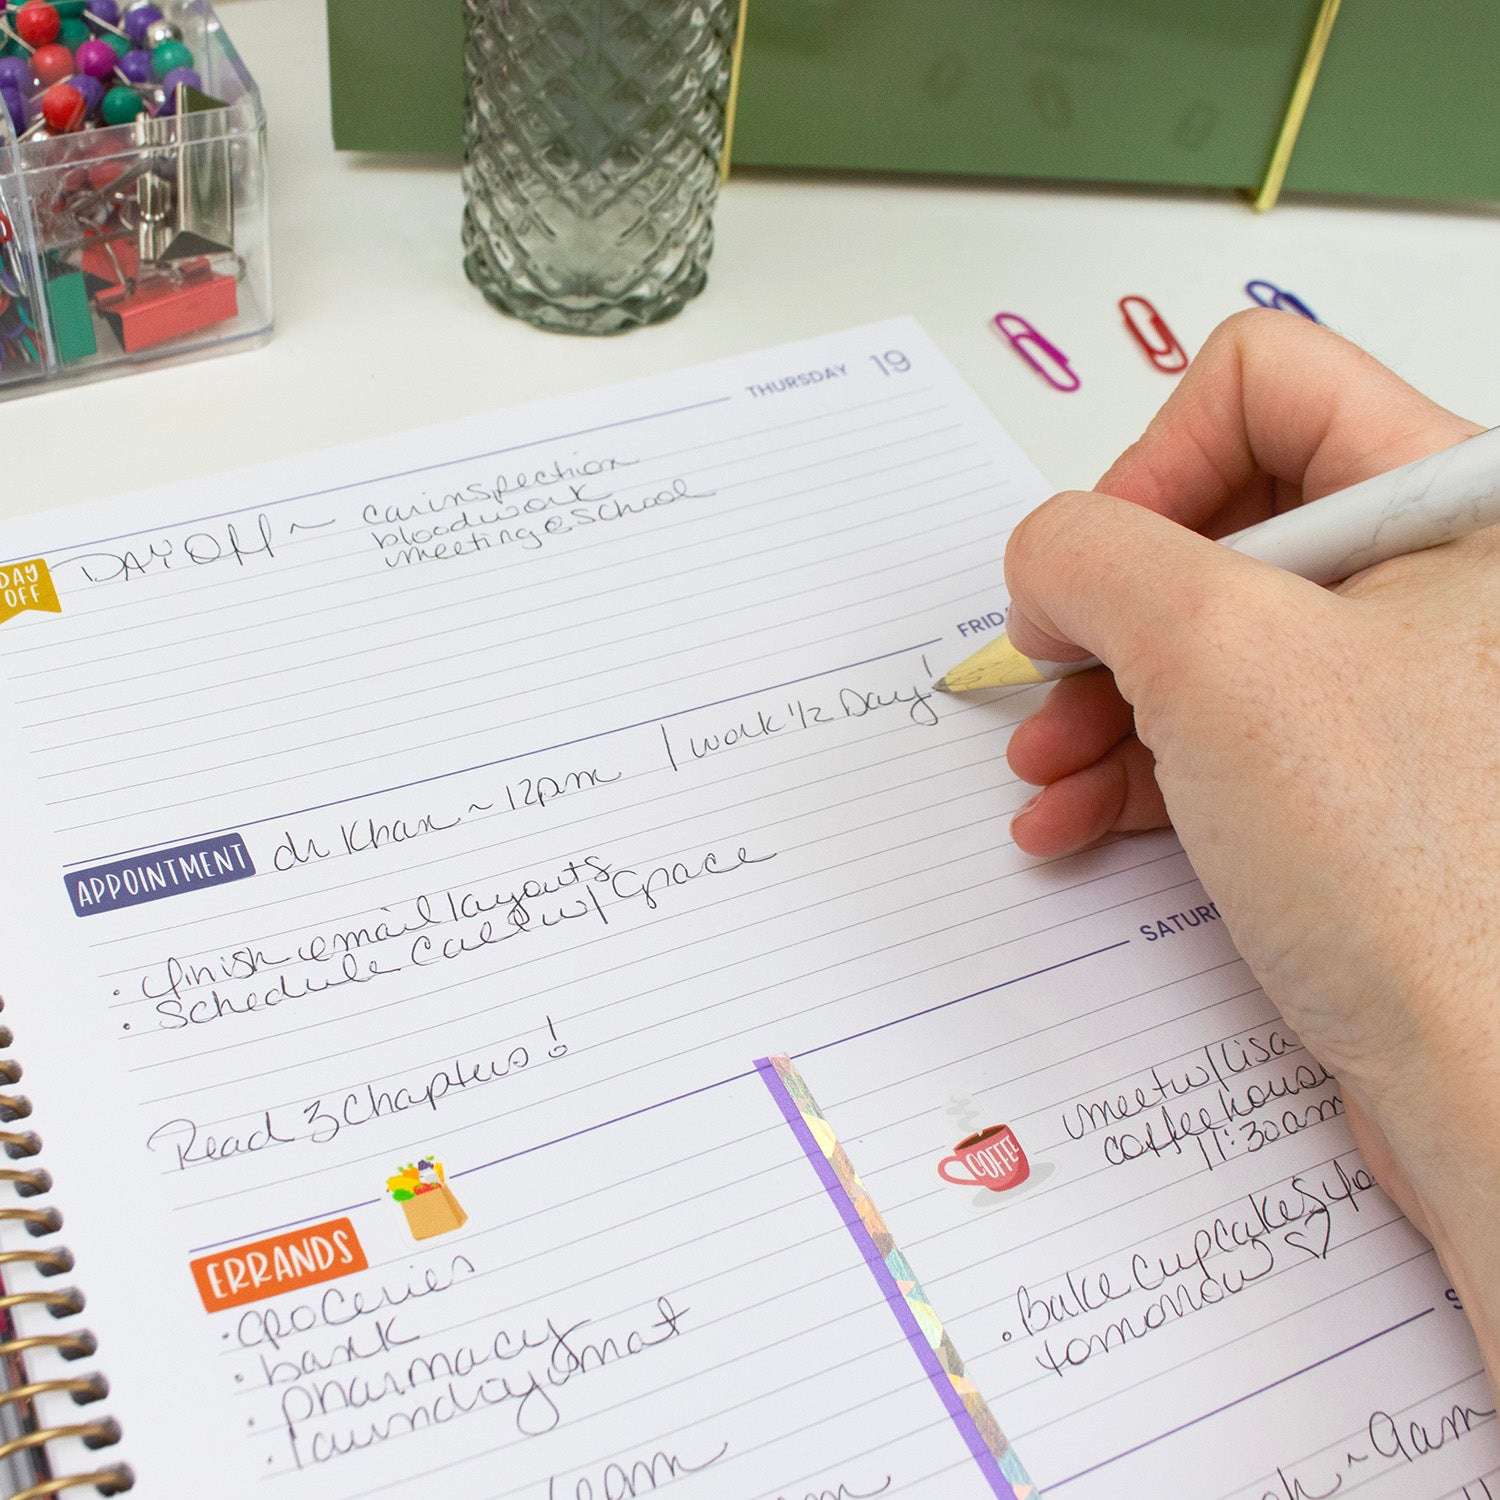 THURSDAY 19
DAY OFF
DAY Off ~ car inspection
bloodwork
meeting @ School
FRID
APPOINTMENT
dr Khan ~ 12pm / work 1/2 Day!
· finish email layouts
· Schedule Call w/ Grace
Read 3 Chapters!
SATUR
ERRANDS
· groceries
· bank
· pharmacy
· laundromat
COFFEE
meet w/ Lisa
coffeehouse
11:30am
· Bake Cupcakes fo
tomorrow ♡
S
~ 9am